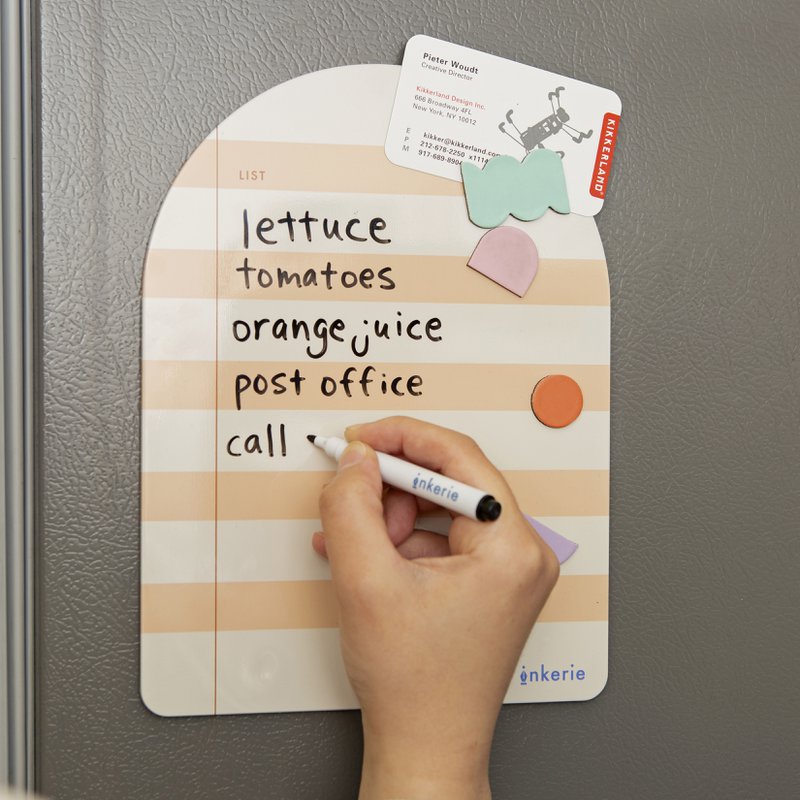 Pieter Woudt
Creative Director
Kikkerland Design Inc.
666 Broadway 4FL
New York, NY 10012
E kikker@kikkerland.com
P 212-678-2250 x111
M 917-689-890
KIKKERLAND
LIST
lettuce
tomatoes
orange juice
post office
call
inkerie
inkerie